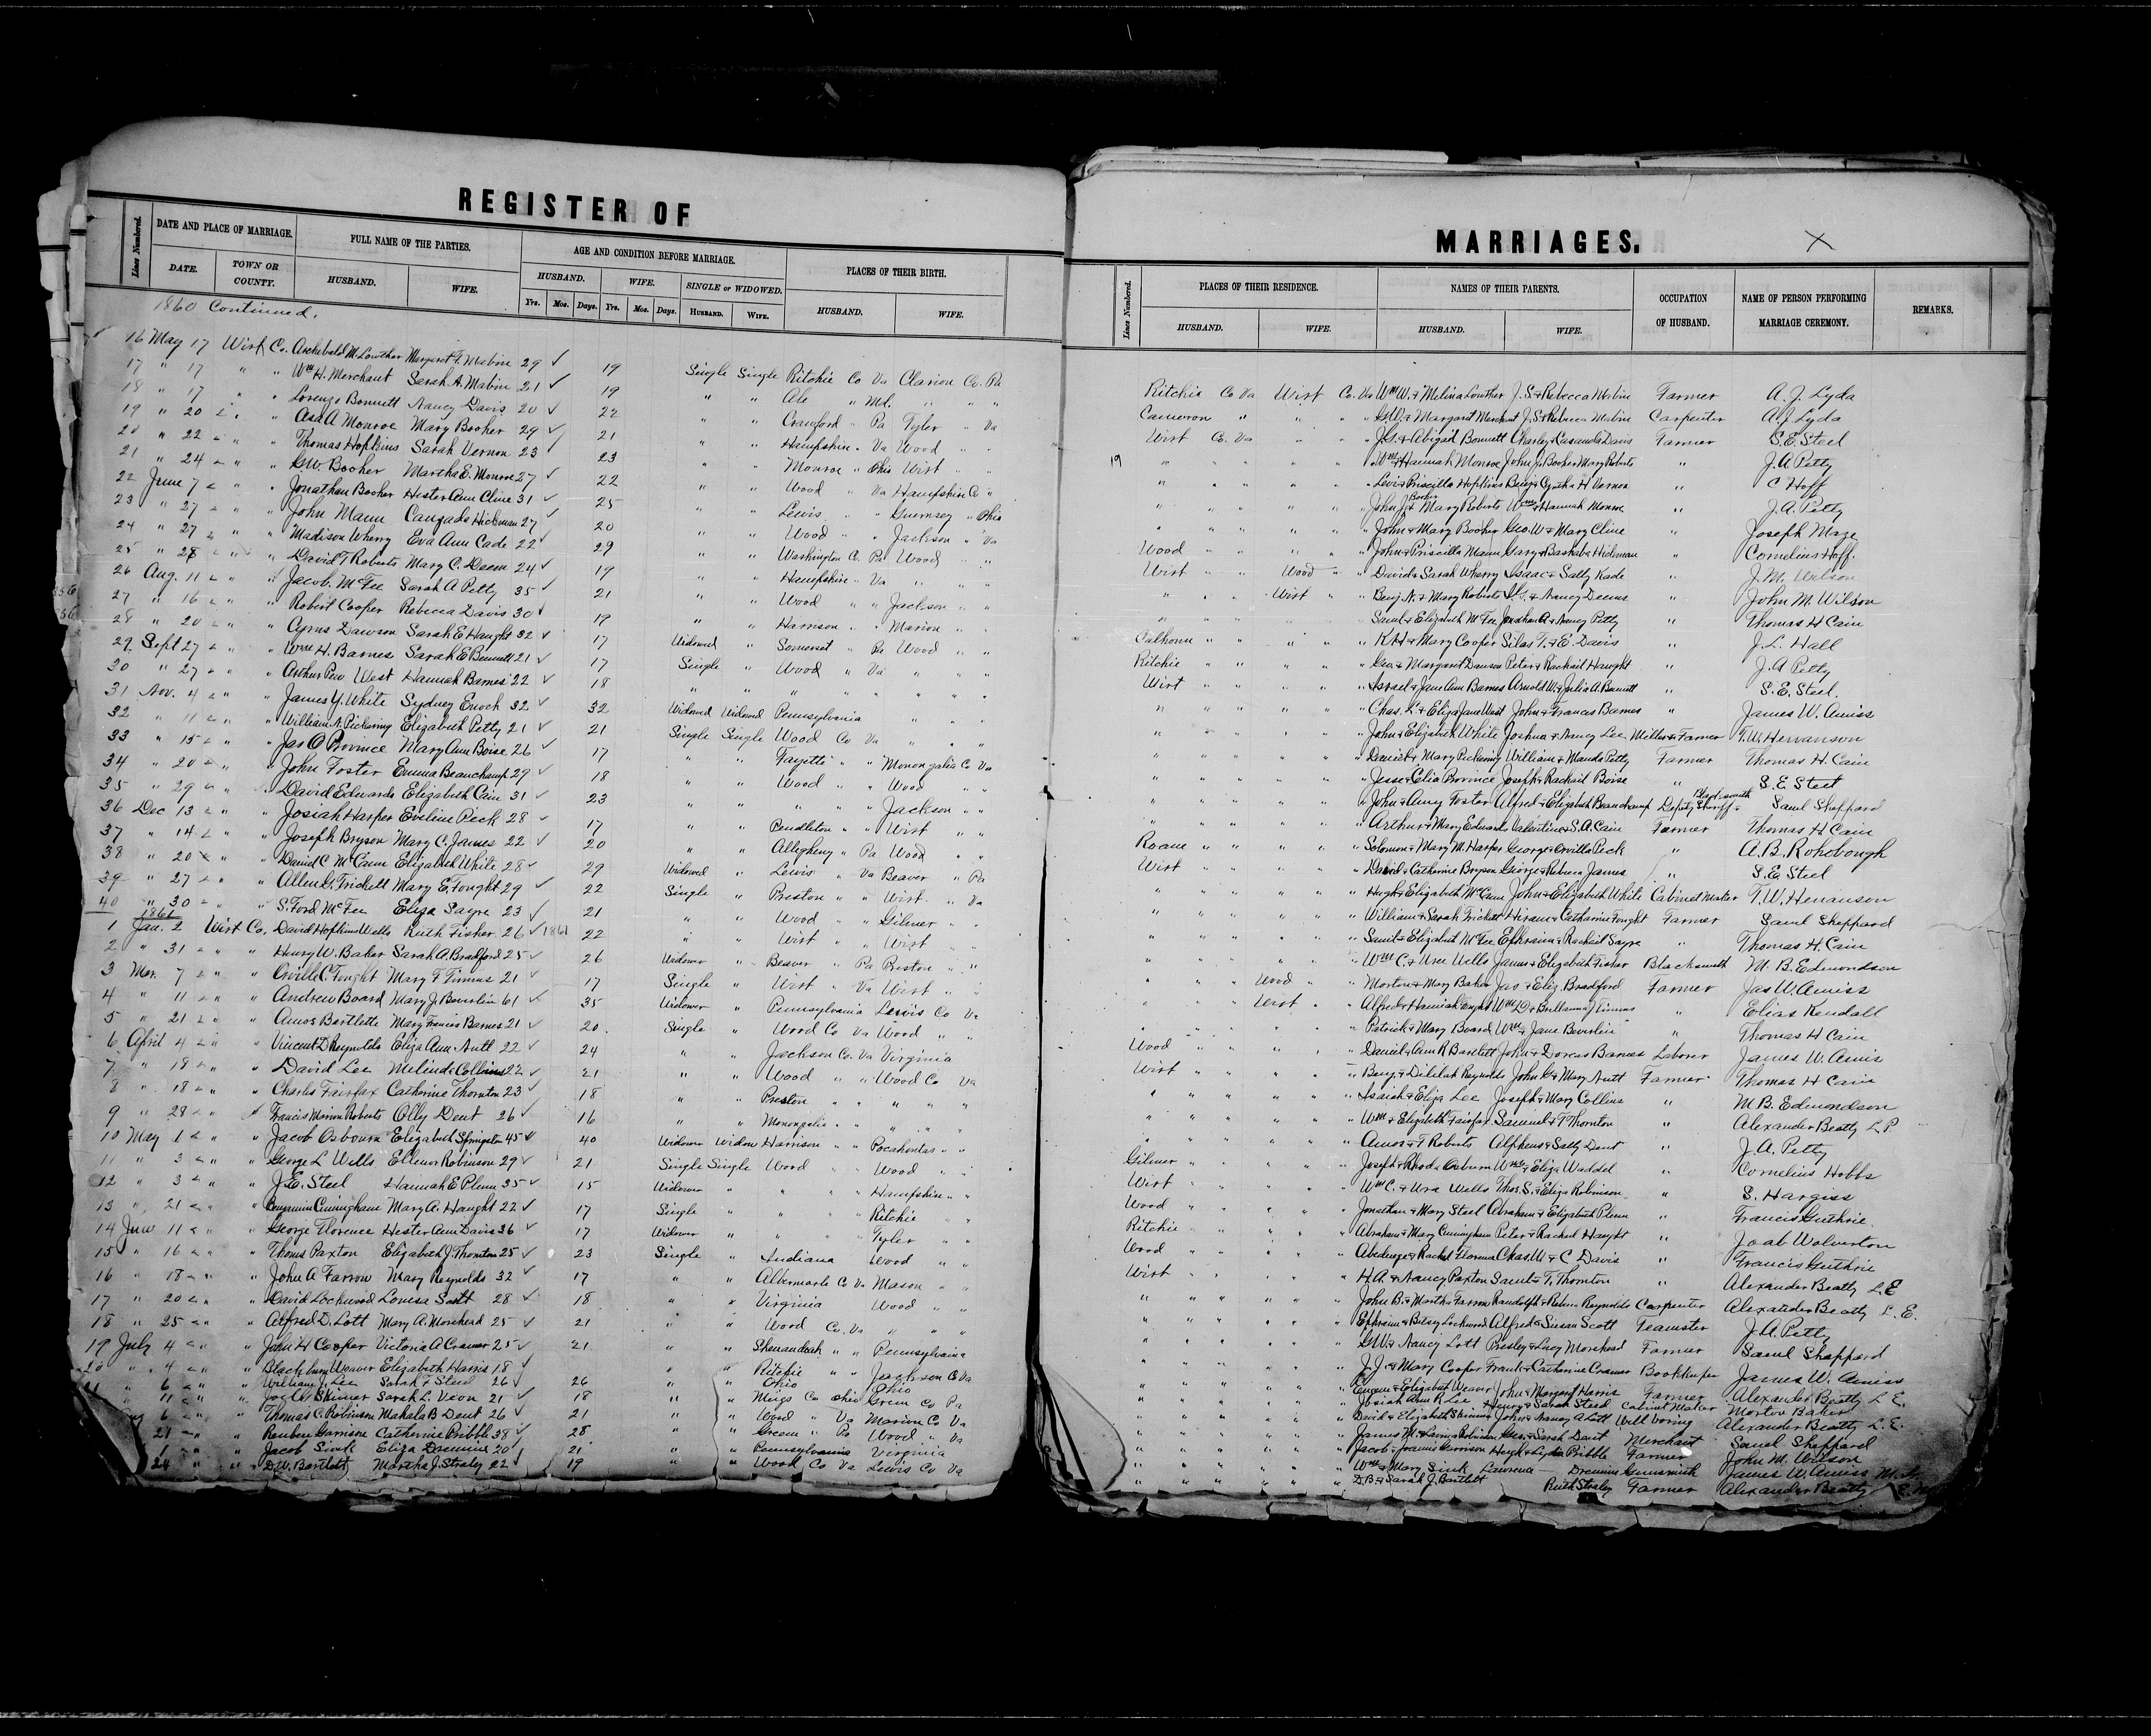 REGISTER OF
Lines Numbered.
DATE AND PLACE OF MARRIAGE.
FULL NAME OF THE PARTIES.
AGE AND CONDITION BEFORE MARRIAGE.
PLACES OF THEIR BIRTH.
DATE. TOWN OR COUNTY. HUSBAND. WIFE. HUSBAND. WIFE. SINGLE or WIDOWED. HUSBAND. WIFE.
Yrs. Mos. Days. Yrs. Mos. Days. HUSBAND. WIFE.
1860 Continued.
16 May 17 Wirt Co. Archibald M. Lowther Margaret T. Mabin 29 ✓ 19 Single Single Ritchie Co Va Clarion Co. Pa
17 " 17 " " Wm H. Merchant Sarah A. Mabin 21 ✓ 19 " " Ale " Md. " " "
18 " 17 " " Lorenzo Bonnett Nancy Davis 20 ✓ 22 " " Crawford " Pa Tyler " Va
19 " 20 " " Asa A Monroe Mary Booher 29 ✓ 21 " " Hampshire " Va Wood " "
20 " 22 " " Thomas Hopkins Sarah Vernon 23 ✓ 23 " " Monroe " Ohio Wirt " "
21 " 24 " " G.W. Booher Martha E. Monroe 27 ✓ 22 " " Wood " Va Hampshire Co "
22 June 7 " " Jonathan Booher Hester Ann Cline 31 ✓ 25 " " Lewis " " Guernsey " Ohio
23 " 27 " " John Mann Hickman 27 ✓ 20 " " Wood " " Jackson " Va
24 " 27 " " Madison Wherry Eva Ann Cade 22 ✓ 29 " " Washington Co. Pa Wood " "
25 " 28 " " David T Roberts Mary C. Deem 24 ✓ 19 " " Hampshire " Va " " "
26 Aug. 11 " " Jacob McFee Sarah A Petty 35 ✓ 21 " " Wood " " Jackson " "
27 " 16 " " Robert Cooper Rebecca Davis 30 ✓ 19 " " Harrison " " Marion " "
28 " 20 " " Cyrus Dawson Sarah E Haught 32 ✓ 17 Widowed " Somerset " Pa Wood " "
29 Sept 27 " " Wm H. Barnes Sarah E Bennett 21 ✓ 17 Single " Wood " Va " " "
30 " 27 " " Arthur Pew West Hannah Barnes 22 ✓ 18 " " " " " " " "
31 Nov. 4 " " James Y. White Sydney Enoch 32 ✓ 32 Widowed Widowed Pennsylvania " " "
32 " 11 " " William N. Pickering Elizabeth Petty 21 ✓ 21 Single Single Wood Co Va " " "
33 " 15 " " Jas O Province Mary Ann Boise 26 ✓ 17 " " Fayette " " Monongalia Co Va
34 " 20 " " John Foster Emma Beauchamp 29 ✓ 18 " " Wood " " Wood " "
35 " 29 " " David Edwards Elizabeth Cain 31 ✓ 23 " " " " " Jackson " "
36 Dec 13 " " Josiah Harper Eveline Peck 28 ✓ 17 " " Pendleton " " Wirt " "
37 " 14 " " Joseph Bryson Mary C. James 22 ✓ 20 " " Allegheny " Pa Wood " "
38 " 20 " " Daniel C. McCann Elizabeth White 28 ✓ 29 Widowed " Lewis " Va Beaver " Pa
39 " 27 " " Allen G. Trickett Mary E. Fought 29 ✓ 22 Single " Preston " " Wirt " Va
40 " 30 " " S. Ford McFee Eliza Sayre 23 ✓ 21 " " Wood " " Gilmer " "
1861
1 Jan. 2 Wirt Co. David Hopkins Wells Ruth Fisher 26 ✓ 1861 22 " " Wirt " " Wirt " "
2 " 31 " " Henry W. Baker Sarah A. Bradford 25 ✓ 26 Widower " Beaver " Pa Preston " "
3 Mar. 7 " " Orville C. Fought Mary F Timms 21 ✓ 17 Single " Wirt " Va Wirt " "
4 " 11 " " Andrew Board Mary J Beverlin 61 ✓ 35 Widower " Pennsylvania Lewis Co Va
5 " 21 " " Amos Bartlette Mary Francis Barnes 21 ✓ 20 Single " Wood Co Va Wood " "
6 April 4 " " Vincent D Reynolds Eliza Ann Nutt 22 ✓ 24 " " Jackson Co. Va Virginia
7 " 18 " " David Lee Melinda Collins 22 ✓ 21 " " Wood " " Wood Co Va
8 " 18 " " Charles Fairfax Catherine Thornton 23 ✓ 18 " " Preston " " " " "
9 " 28 " " Francis Marion Roberts Olly Dent 26 ✓ 16 " " Monongalia " " " " "
10 May 1 " " Jacob Osbourn Elizabeth Springston 45 ✓ 40 Widower Widow Harrison " " Pocahontas " "
11 " 3 " " George L Wells Ellenor Robinson 29 ✓ 21 Single Single Wood " " Wood " "
12 " 3 " " J.E. Steel Hannah E Plum 35 ✓ 15 Widower " " " " Hampshire " "
13 " 21 " " Benjamin Cunningham Mary A. Haught 22 ✓ 17 Single " " " " Ritchie " "
14 June 11 " " George Florence Hester Ann Davis 36 ✓ 17 Widower " " " " Tyler " "
15 " 16 " " Thomas Paxton Elizabeth J. Thornton 25 ✓ 23 Single " Indiana Wood " "
16 " 18 " " John A Farrow Mary Reynolds 32 ✓ 17 " " Albermarle Co Va Mason " "
17 " 20 " " David Lockwood Louisa Scott 28 ✓ 18 " " Virginia Wood " "
18 " 25 " " Alfred D. Lott Mary A. Morehead 25 ✓ 21 " " Wood Co. Va " " "
19 July 4 " " John H Cooper Victoria A Cramer 25 ✓ 21 " " Shenandoah " " Pennsylvania
20 " 4 " " Blackburn Weaver Elizabeth Harris 18 ✓ " " Ritchie " " Jackson Co Va
" 6 " " William J. Lee Sarah F Steed 26 ✓ 26 " " Ohio Ohio
" 11 " " Skinner Sarah L. Veon 21 ✓ 18 " " Meigs Co Ohio Green Co Pa
6 " " Thomas C. Robinson Mahala B Dent 26 ✓ 21 " " Wood " Va Marion Co Va
21 " " Reuben Garrison Catherine Pribble 38 ✓ 28 " " Green " Pa Wood " Va
1 " " Jacob Sink Eliza 20 ✓ 21 " " Pennsylvania Virginia
24 " " D.W. Bartlett Martha J. Straley 22 ✓ 19 " " Wood Co Va Lewis Co Va
MARRIAGES. X
Lines Numbered.
PLACES OF THEIR RESIDENCE. NAMES OF THEIR PARENTS. OCCUPATION OF HUSBAND. NAME OF PERSON PERFORMING MARRIAGE CEREMONY. REMARKS.
HUSBAND. WIFE. HUSBAND. WIFE.
Ritchie Co Va Wirt Co. Va Wm W. & Melina Lowther J. S. & Rebecca Mabin Farmer A. J. Lyda
Cameron " " " " G.W. & Margaret Merchant J. S. & Rebecca Mabin Carpenter A. J. Lyda
Wirt Co. Va " " " J.G. & Abigail Bonnett Charley & Casanda Davis Farmer S. E. Steel
19 " " " " " " Wm & Hannah Monroe John J. Booher Mary Roberts " J. A Petty
" " " " " " Levi & Priscilla Hopkins Benj. & Cyntha H Vernon " C Hoff
" " " " " " John J. Booher & Mary Roberts Wm & Hannah Monroe " J. A. Petty
" " " " " " John & Mary Booher Geo. W. & Mary Cline " Joseph Mage
Wood " " " " " John & Priscilla Mann Gary & Hickman " Cornelius Hoff.
Wirt " " Wood " " David & Sarah Wherry Isaac & Sally Kade " J. M. Wilson
" " " Wirt " " Benj. N. & Mary Roberts & Nancy Deems " John M. Wilson
" " " " " " Saml & Elizabeth McFee Jonathan A & Nancy Petty " Thomas H Cain
Calhoun " " " " " K.H. & Mary Cooper Silas T. & E. Davis " J. L. Hall
Ritchie " " " " " Geo. & Margaret Dawson Peter & Rachail Haught " J. A Petty
Wirt " " " " " Israel & Jane Ann Barnes Arnold W. & Julia A. Bennett " S. E. Steel.
" " " " " " Chas. L. & Eliza Jane West John & Frances Barnes " James W. Amiss
" " " " " " John & Elizabeth White Joshua & Nancy Lee Miller & Farmer T. W. Hervanson
" " " " " " Daniel & Mary Pickering William & Petty Farmer Thomas H. Cain
" " " " " " Jesse & Celia Province Joseph & Rachail Boise " S. E. Steel
" " " " " " John & Amy Foster Alfred & Elizabeth Beauchamp Deputy Sheriff & Blacksmith Saml Sheppard
" " " " " " Arthur & Mary Edwards Valentine & S.A. Cain Farmer Thomas H Cain
Roane " " " " " Solomon & Mary M. Harper George & Orvilla Peck " A. B. Rohobough
Wirt " " " " " David & Catherine Bryson George & Rebecca James " S. E. Steel
" " " " " " Hugh & Elizabeth McCann John & Elizabeth White Cabinet Maker T. W. Hervanson
" " " " " " William & Sarah Trickett Hiram & Catharine Fought Farmer Saml Sheppard
" " " " " " Saml & Elizabeth McFee Ephraim & Rachail Sayre " Thomas H. Cain
" " " " " " Wm C. & Urec Wells James & Elizabeth Fisher Blacksmith M. B. Edmondson
" " " Wood " " Morton & Mary Baker Jas & Eliz. Bradford Farmer Jas W. Amiss
" " " Wirt " " Alfred & Hannah Fought Wm D. & Timms " Elias Kendall
" " " " " " Patrick & Mary Board Wm & Jane Beverlin " Thomas H Cain
Wood " " " " " Daniel & Ann R Bartlett John & Dorcas Barnes Laborer James W. Amis
Wirt " " " " " Benj. & Delilah Reynolds John G. & Mary Nutt Farmer Thomas H Cain
" " " " " " Isaiah & Eliza Lee Joseph & Mary Collins " M. B. Edmondson
" " " " " " Wm & Elizabeth Fairfax Samuel & T Thornton " Alexander Beatty L.P.
" " " " " " Amos & T Roberts Alpheus & Sally Dent " J. A. Petty
Gilmer " " " " " Joseph & Rhoda Osburn Wm & Eliza Waddel " Cornelius Hobbs
Wirt " " " " " Wm C. & Ura Wells Thos. S. & Eliza Robinson " S. Hargiss
Wood " " " " " Jonathan & Mary Steel Abraham & Elizabeth Plum " Francis Guthrie
Ritchie " " " " " Abraham & Mary Cunningham Peter & Rachael Haught " Joab Wolverton
Wood " " " " " Abednego & Rachel Florence Chas. W. & C Davis " Francis Guthrie
Wirt " " " " " H. A. & Nancy Paxton Saml & T. Thornton " Alexander Beatty L E
" " " " " " John B. & Martha Farrow Randolph & Rebecca Reynolds Carpenter Alexander Beatty L. E.
" " " " " " Ephraim & Betsy Lockwood Alfred & Susan Scott Teamster J. A. Petty
" " " " " " G.W. & Nancy Lott Presley & Lucy Morehead Farmer Saml Sheppard
" " " " " " J. J. & Mary Cooper Frank & Catherine Cramer Bookkeeper James W. Amiss
" " " " " " Eugene & Elizabeth Weaver John & Margaret Harris Farmer Alexander Beatty L E.
" " " " " " Josiah & Ann R Lee Henry & Sarah Steed Cabinet Maker Morton Baker
" " " " " " David & Elizabeth Skinner John & Nancy A Lott Well boring Alexander Beatty L. E.
" " " " " " James M. & Robinson Geo. & Sarah Dent Merchant Saml Sheppard
" " " " " " Jacob & Garrison Hugh & Lydia Pribble Farmer John M. Wilson
" " " " " " Wm & Mary Sink Lawrence Gunsmith James W. Amiss
" " " " " " D.B. & Sarah J. Bartlett Ruth Straley Farmer Alexander Beatty